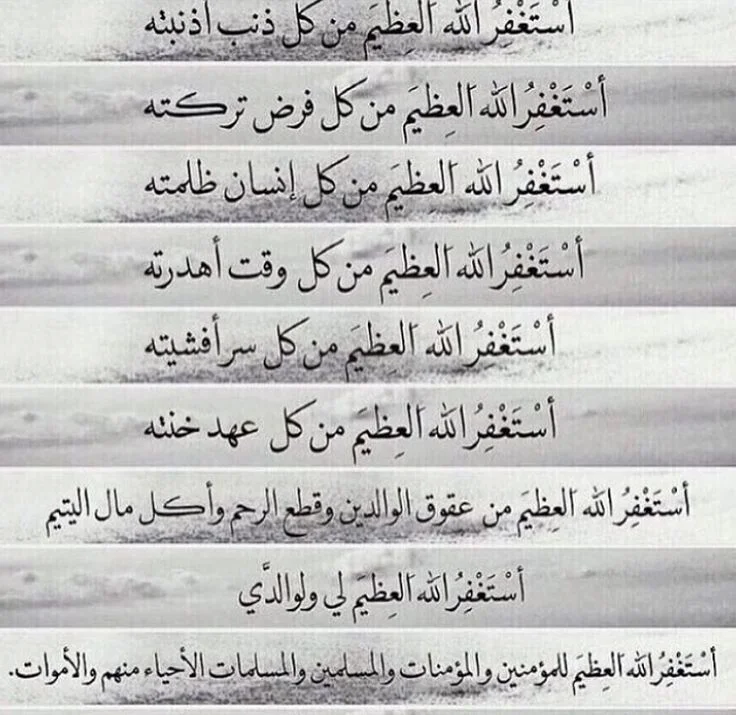 أسْتَغْفِرُ الله العِظيَم من كل ذنب أذنبته
أسْتَغْفِرُ الله العِظيَم من كل فرض تركته
أسْتَغْفِرُ الله العِظيَم من كل إنسان ظلمته
أسْتَغْفِرُ الله العِظيَم من كل وقت أهدرته
أسْتَغْفِرُ الله العِظيَم من كل سر أفشيته
أسْتَغْفِرُ الله العِظيَم من كل عهد خنته
أسْتَغْفِرُ الله العِظيَم من عقوق الوالدين وقطع الرحم وأكل مال اليتيم
أسْتَغْفِرُ الله العِظيَم لي ولوالدَّي
أسْتَغْفِرُ الله العِظيَم للمؤمنين والمؤمنات والمسلمين والمسلمات الأحياء منهم والأموات.